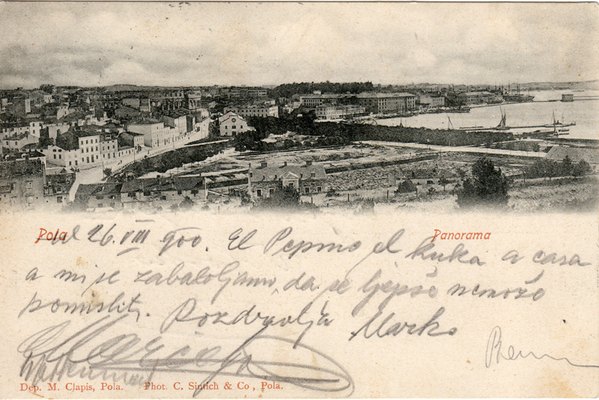 Pola
Panorama
26. VIII 900. El Pepino el kuka a casa
a mi se zabavljamo, da se ljepše nemožo
pomisliti. Pozdravlja Marko
Dep. M. Clapis, Pola. Phot. C. Sintich & Co, Pola.